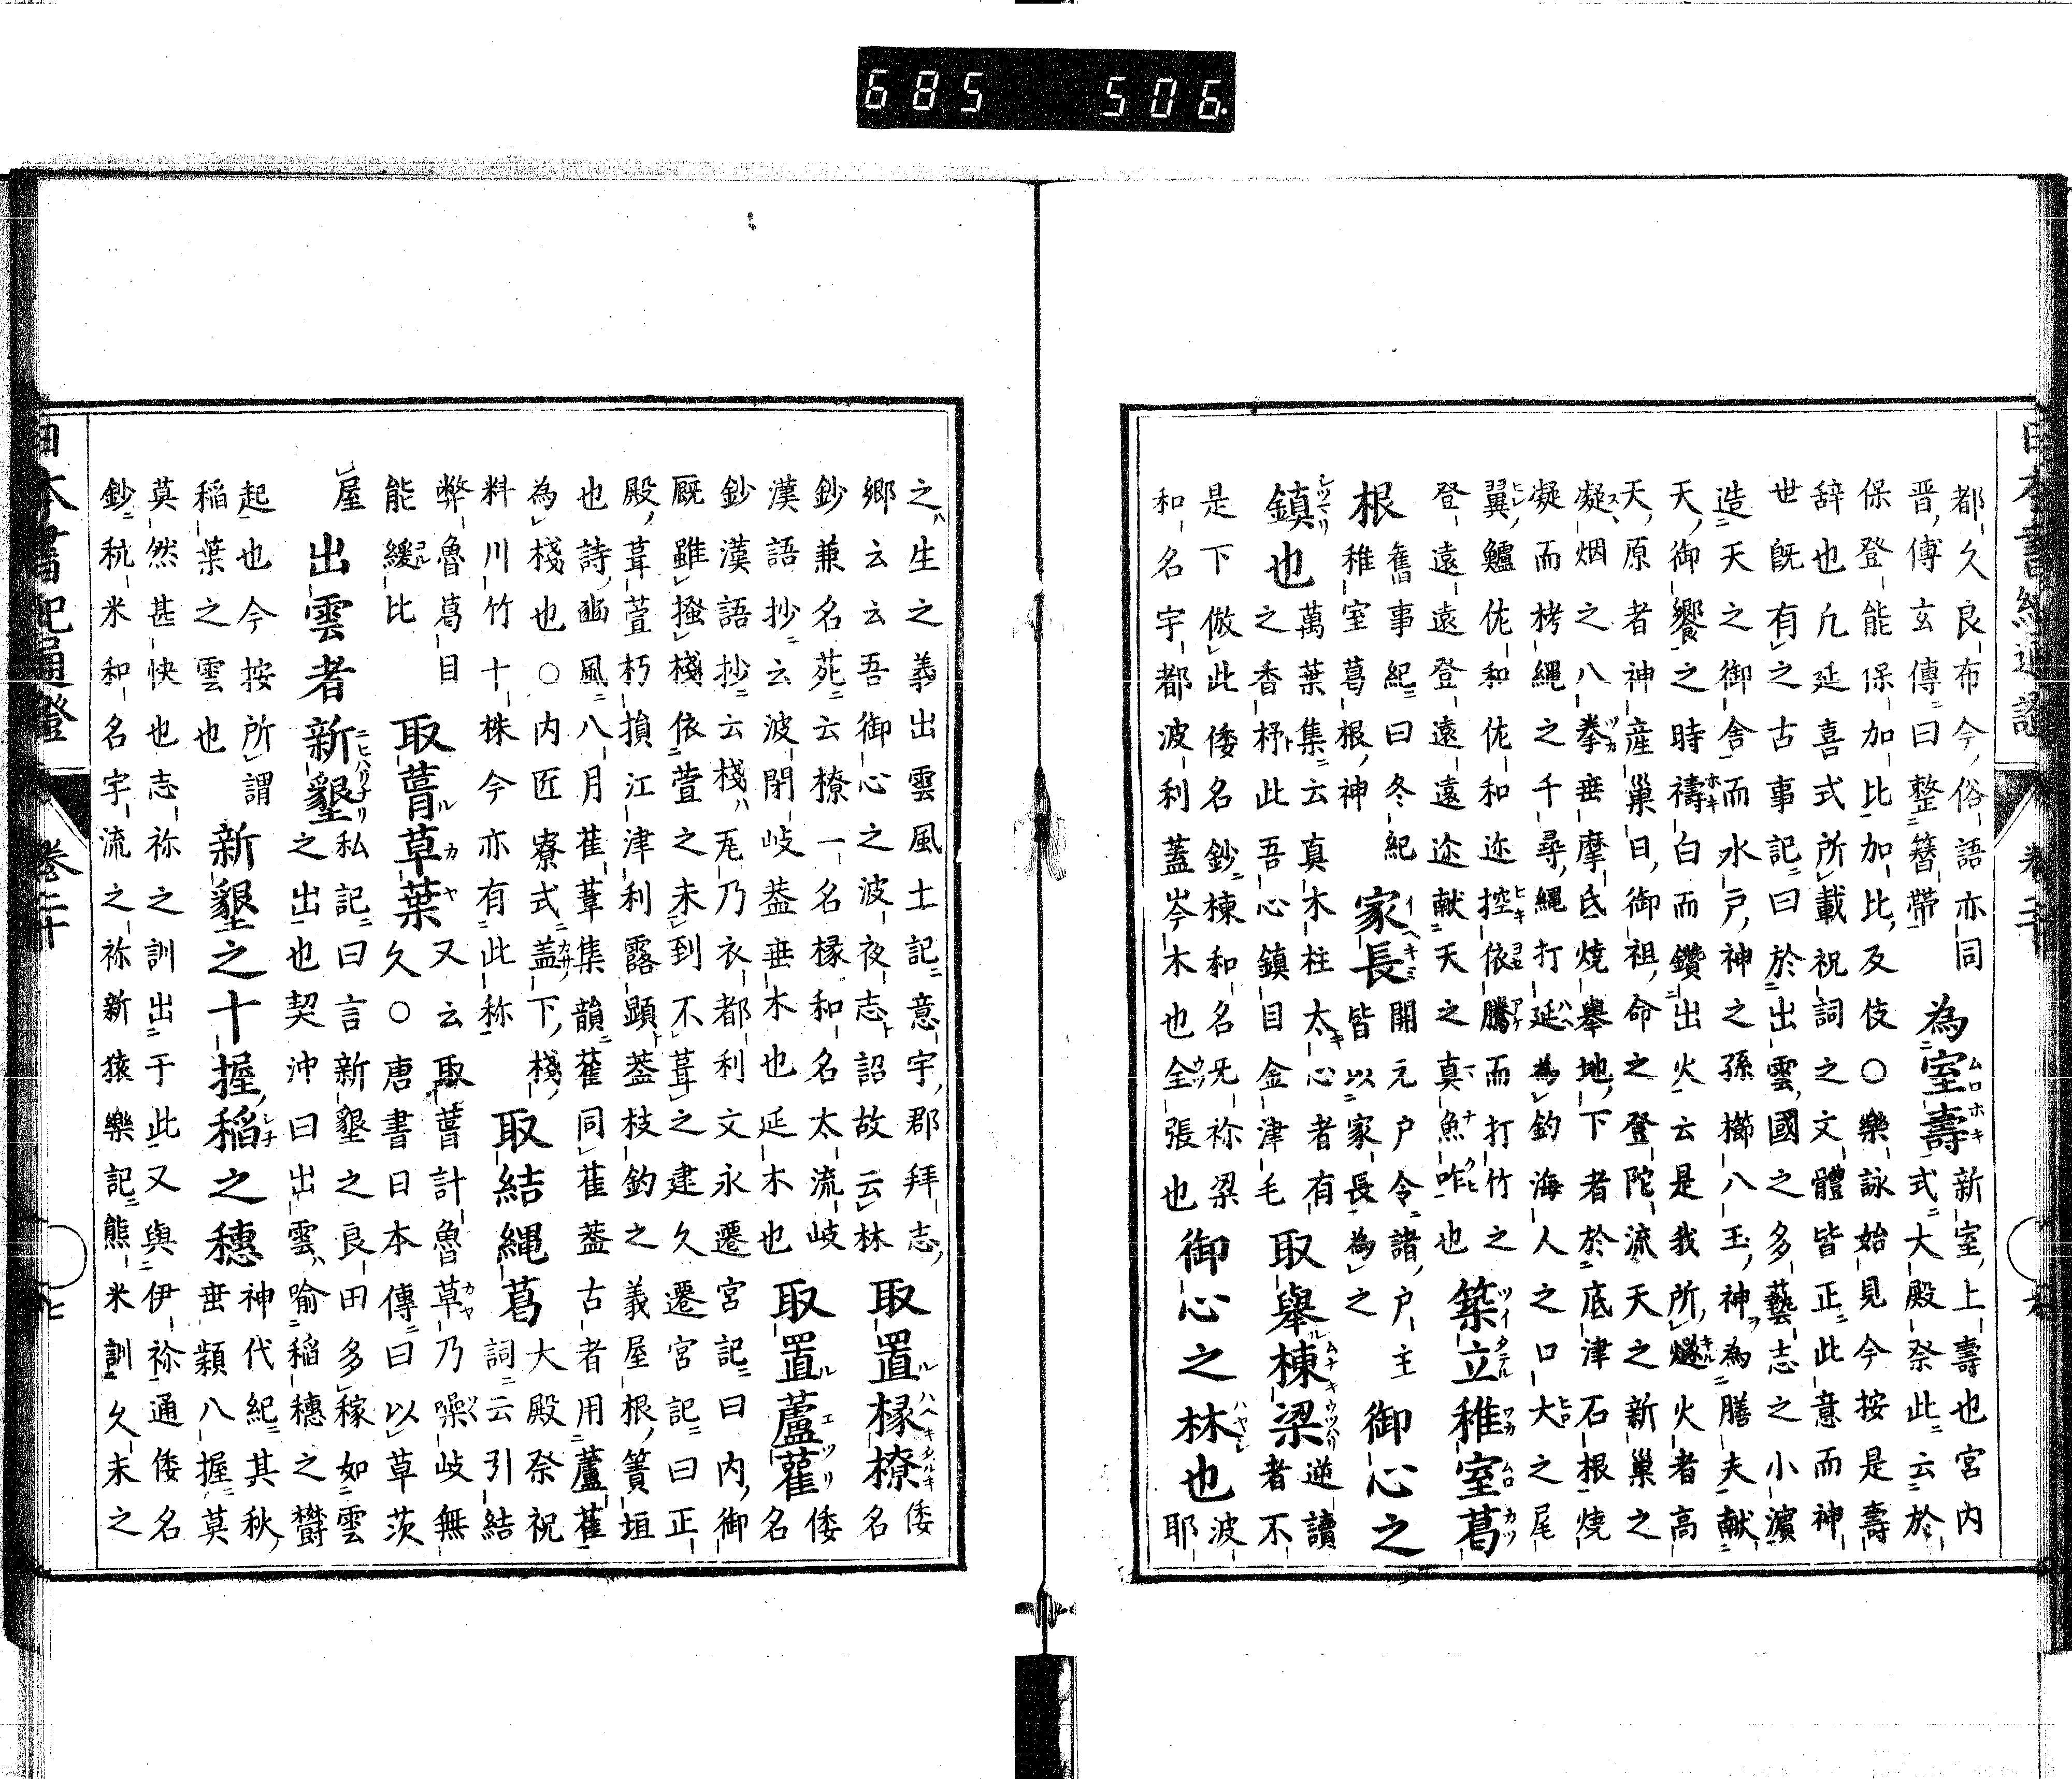 685 506.
都久良布今俗語亦同
為室壽
新室上壽也宮内
晋傳玄傳曰整簪帶
式大殿祭此云於
保登能保加比加比及伎○樂詠始見今按是壽
辞也凡延喜式所載祝詞之文體皆正此意而神
世既有之古事記曰於出雲國之多藝志之小濵
造天之御舎而水戸神之孫櫛八玉神為膳夫献
天御饗之時禱白而鑽出火云是我所燧火者高
天原者神産巣日御祖命之登陀流天之新巣之
凝烟之八拳垂摩氐焼擧地下者於底津石根焼
凝而栲縄之千尋縄打延為釣海人之口大之尾
翼鱸佐和佐和迩控依騰而打竹之
登遠遠登遠遠迩献天之真魚咋也
築立稚室葛
根
舊事紀曰冬紀
稚室葛根神
家長
開元戸令諸戸主
皆以家長為之
御心之
鎮也
萬葉集云真木柱太心者有
之香杼此吾心鎮目金津毛
取擧棟梁
逆讀
者不
是下倣此倭名鈔棟和名无祢梁
和名宇都波利蓋岑木也全張也
御心之林也
波
耶
之生之義出雲風土記意宇郡拜志
郷云云吾御心之波夜志詔故云林
取置椽橑
倭
名
鈔兼名苑云橑一名椽和名太流岐
漢語抄云波閉岐葢垂木也延木也
取置蘆雚
倭
名
鈔漢語抄云棧乃衣都利文永遷宮記曰内御
厩雖搔棧依萱之未到不葺之建久遷宮記曰正
殿葺萱朽損江津利露顕葢枝釣之義屋根簀垣
也詩豳風八月萑葦集韻雚同萑葢古者用蘆萑
為棧也○内匠寮式盖下棧
料川竹十株今亦有此称
取結縄葛
大殿祭祝
詞云引結
弊魯葛目
能緩比
取葺草葉
又云取葺計魯草乃噪岐無
久○唐書日本傳曰以草茨
屋
出雲者新墾
私記曰言新墾之良田多稼如雲
之出也契沖曰出雲喩稲穂之欝
起也今按所謂
稲葉之雲也
新墾之十握稲之穂
神代紀其秋
垂穎八握莫
莫然甚快也志祢之訓出于此又與伊祢通倭名
鈔秔米和名宇流之祢新猿樂記熊米訓久未之
日本書紀通證
卷二十
七